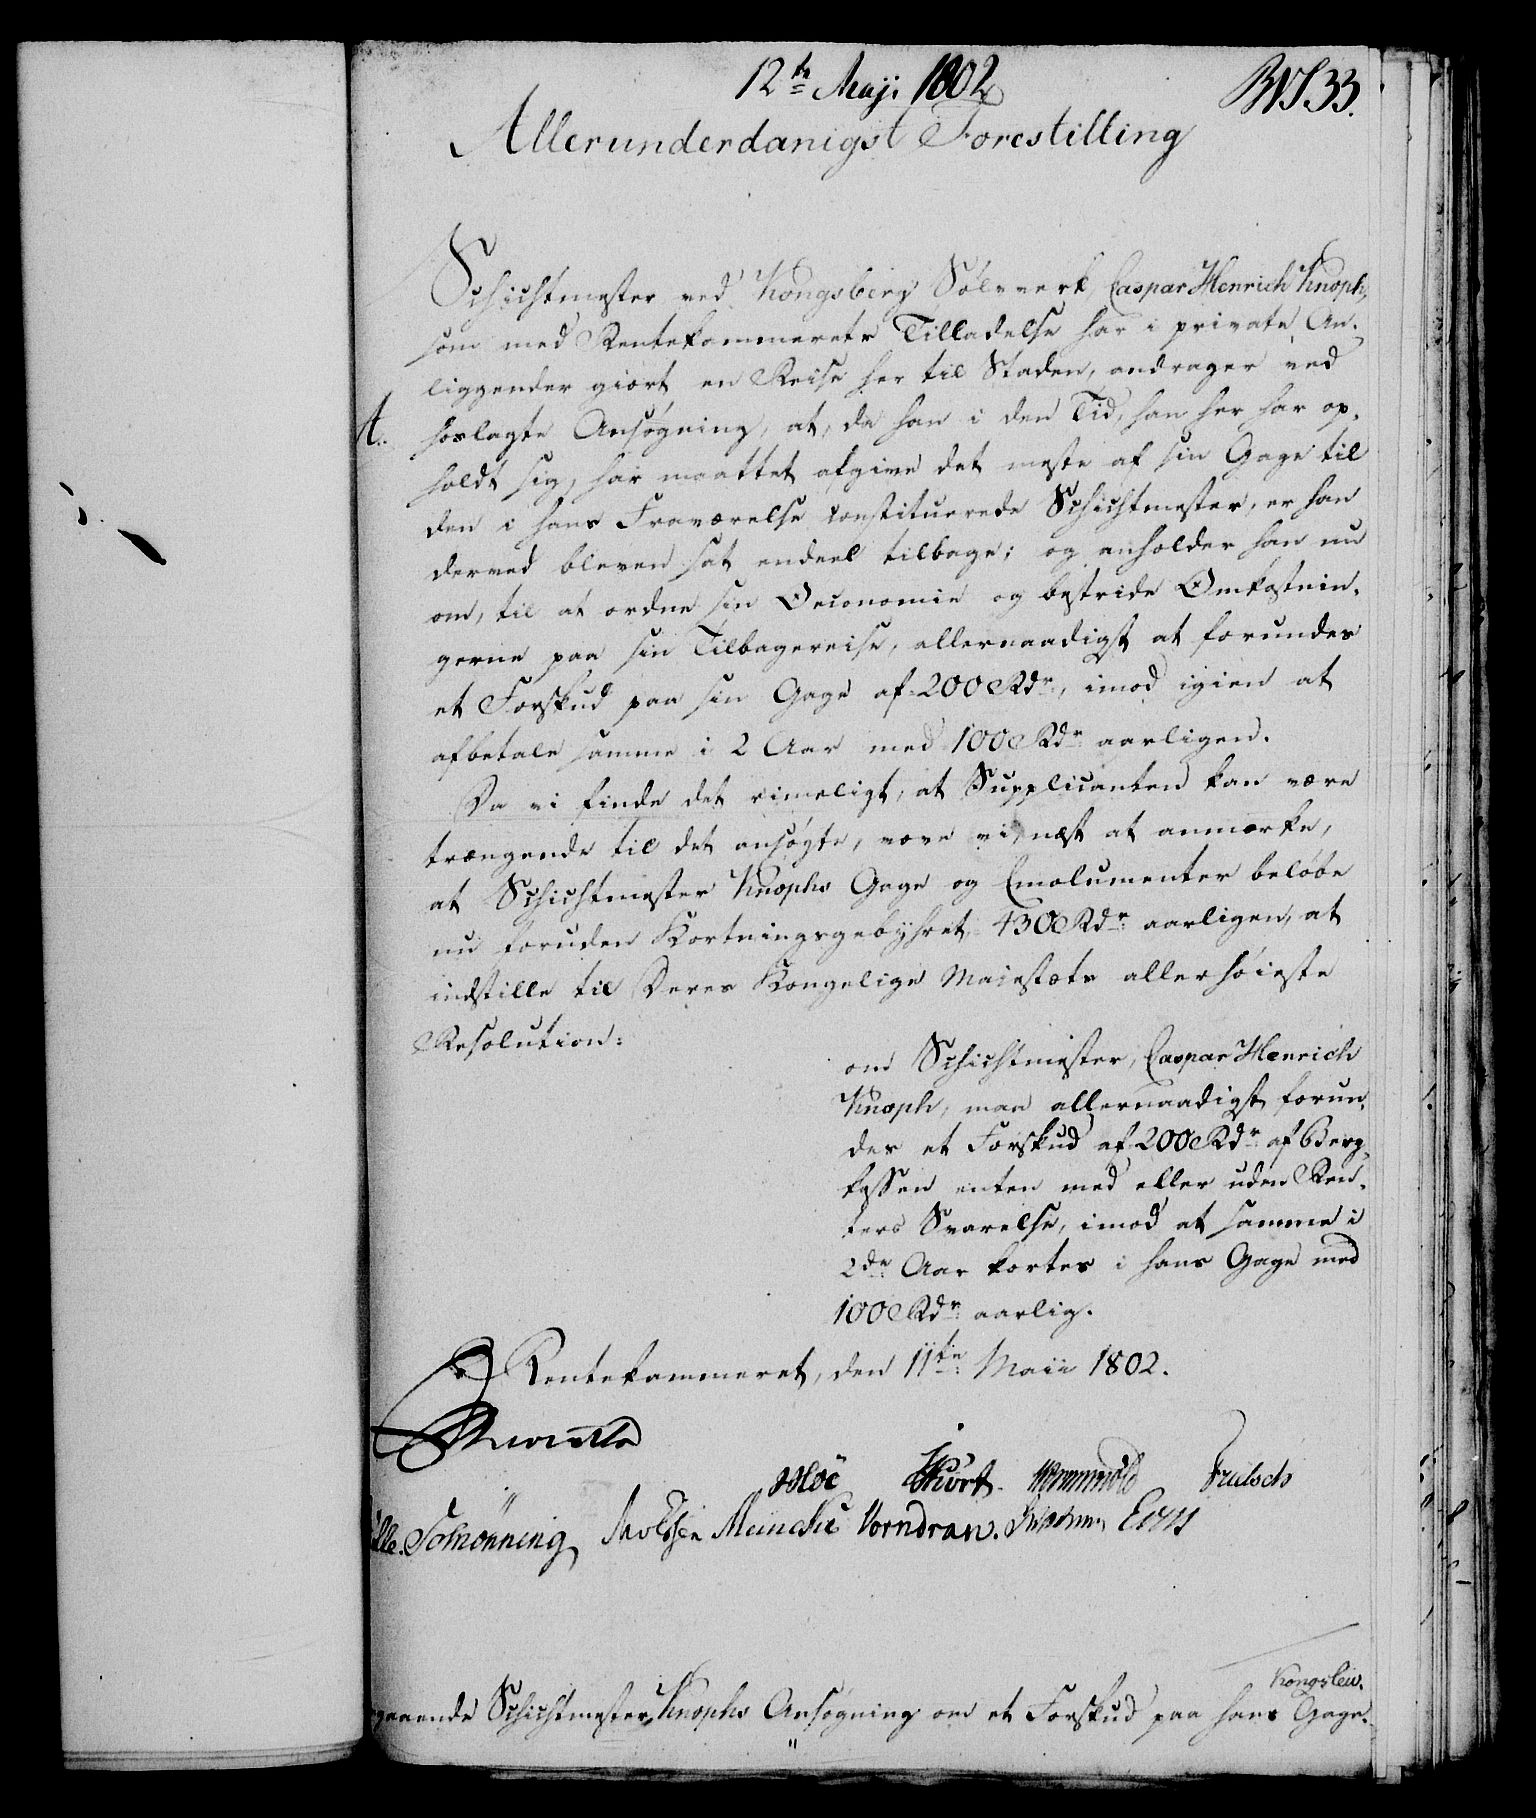 12te Maji 1802
Allerunderdanigst Forestilling
Schichtmester ved Kongsberg Sölvverk, Caspar Henrich Knoph,
som med Rentekammerets Tilladelse har i private An-
liggender giort en Reise her til Staden, andrager ved
A. hoslagte Ansøgning, at, da han i den Tid, han her har op-
holdt sig, har maattet afgive det meste af sin Gage til
den i hans Fraværelse constituerede Schichtmester, er han
derved bleven sat endeel tilbage; og anholder han nu
om, til at ordne sin Oeconomie og bestride Omkostnin-
gerne paa sin Tilbagereise, allernaadigst at forundes
et Forskud paa sin Gage af 200 Rdr, imod igien at
afbetale samme i 2 Aar med 100 Rdr aarligen.
Da vi finde det rimeligt, at Supplicanten kan være
trængende til det ansøgte, vove vi, næst at anmærke,
at Schichtmester Knophs Gage og Emolumenter beløbe
nu foruden Kortningsgebyhret 430 Rdr aarligen, at
indstille til Deres Kongelige Majestæts allerhöieste
Resolution:
om Schichtmester, Caspar Henrich
Knoph, maa allernaadigst forun-
des et Forskud af 200 Rdr af Berg-
kassen enten med eller uden Ren-
ters Svarelse, imod at samme i
2de Aar kortes i hans Gage med
100 Rdr aarlig.
Rentekammeret, den 11te Maii 1802.
Reventlow
Höe Wormskiold
Schönning Meincke Vorndran.
Kongslew.
gaaende Schichtmester Knophs Ansøgning om et Forskud paa hans Gage.